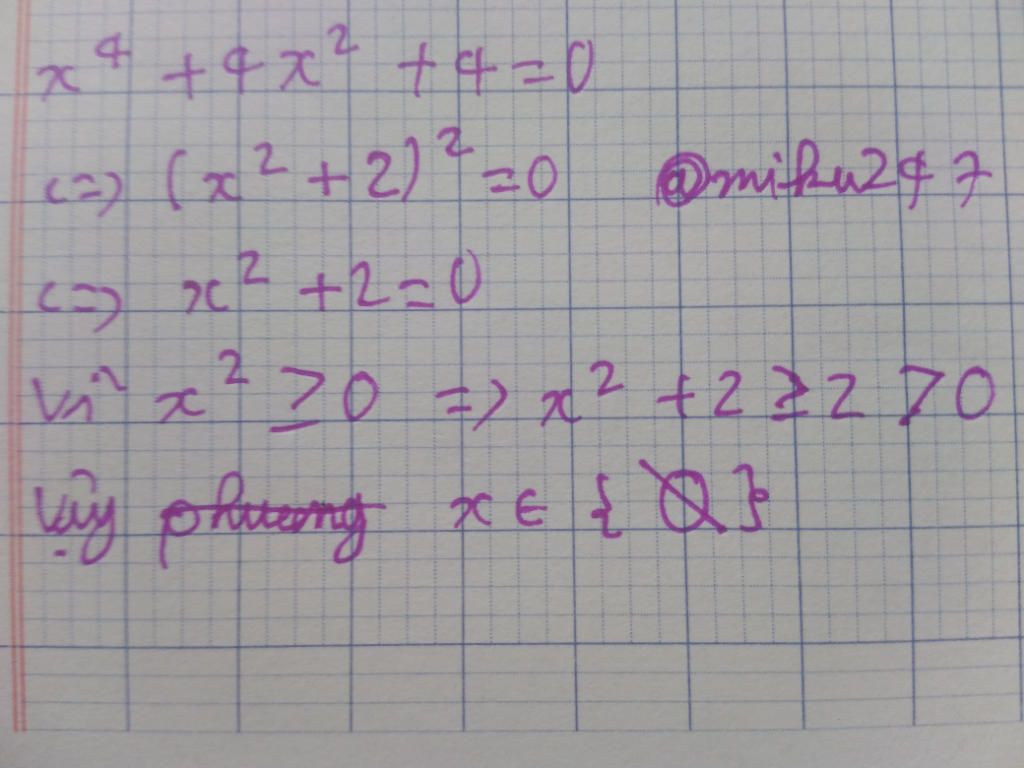 x⁴ + 4x² + 4 = 0
<=> (x² + 2)² = 0 @miku247
<=> x² + 2 = 0
Vì x² ≥ 0 => x² + 2 ≥ 2 > 0
Vậy phương x ∈ {∅}